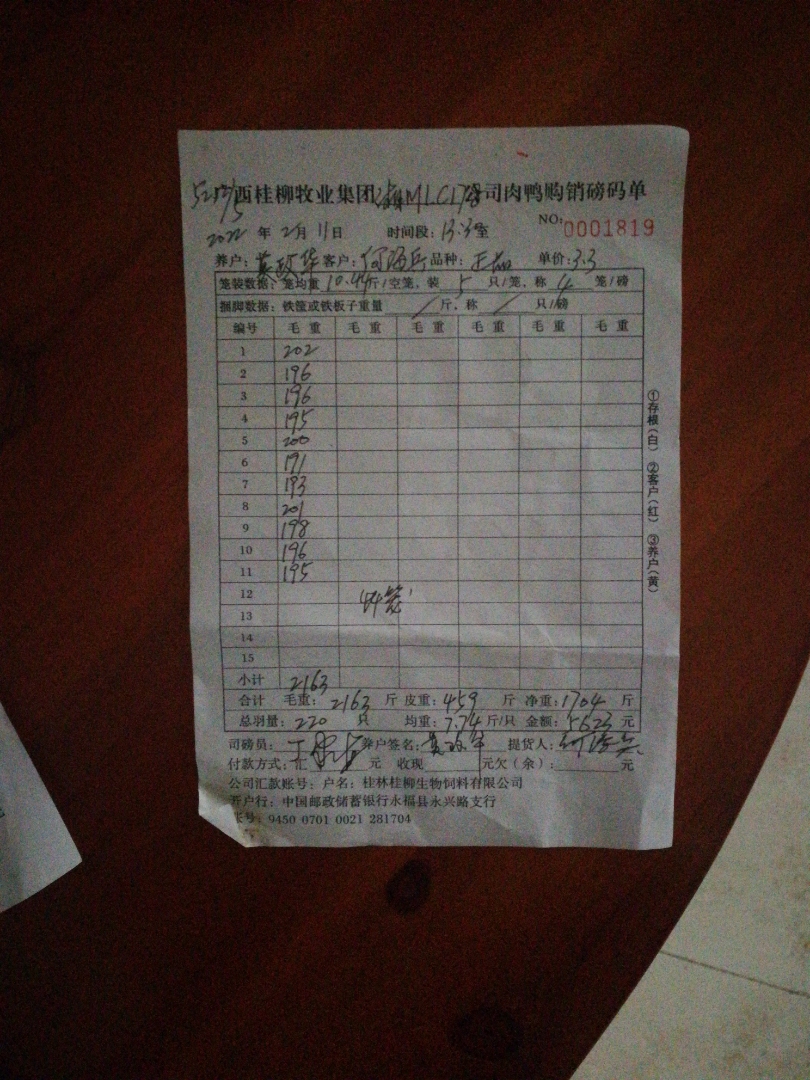 广西桂柳牧业集团 公司肉鸭购销磅码单
2022年2月11日 时间段:13:3至 NO:0001819
养户:黄政华 客户: 品种:正品 单价:3.3
笼装数据:笼均重10.44斤/空笼,装5只/笼,称4笼/磅
捆脚数据:铁筐或铁板子重量/斤,称/只/磅
编号 毛重 毛重 毛重 毛重 毛重 毛重
1 202
2 196
3 196
4 195
5 200
6 191
7 193
8 201
9 198
10 196
11 195
12
44笼
13
14
15
小计 2163
合计 毛重:2163斤 皮重:459斤 净重:1704斤
总羽量:220只 均重:7.74斤/只 金额:5623元
司磅员: 养户签名:黄政华 提货人:
付款方式:汇 元 收现 元欠(余): 元
公司汇款账号:户名:桂林桂柳生物饲料有限公司
开户行:中国邮政储蓄银行永福县永兴路支行
账号:9450 0701 0021 281704
①存根(白) ②客户(红) ③养户(黄)